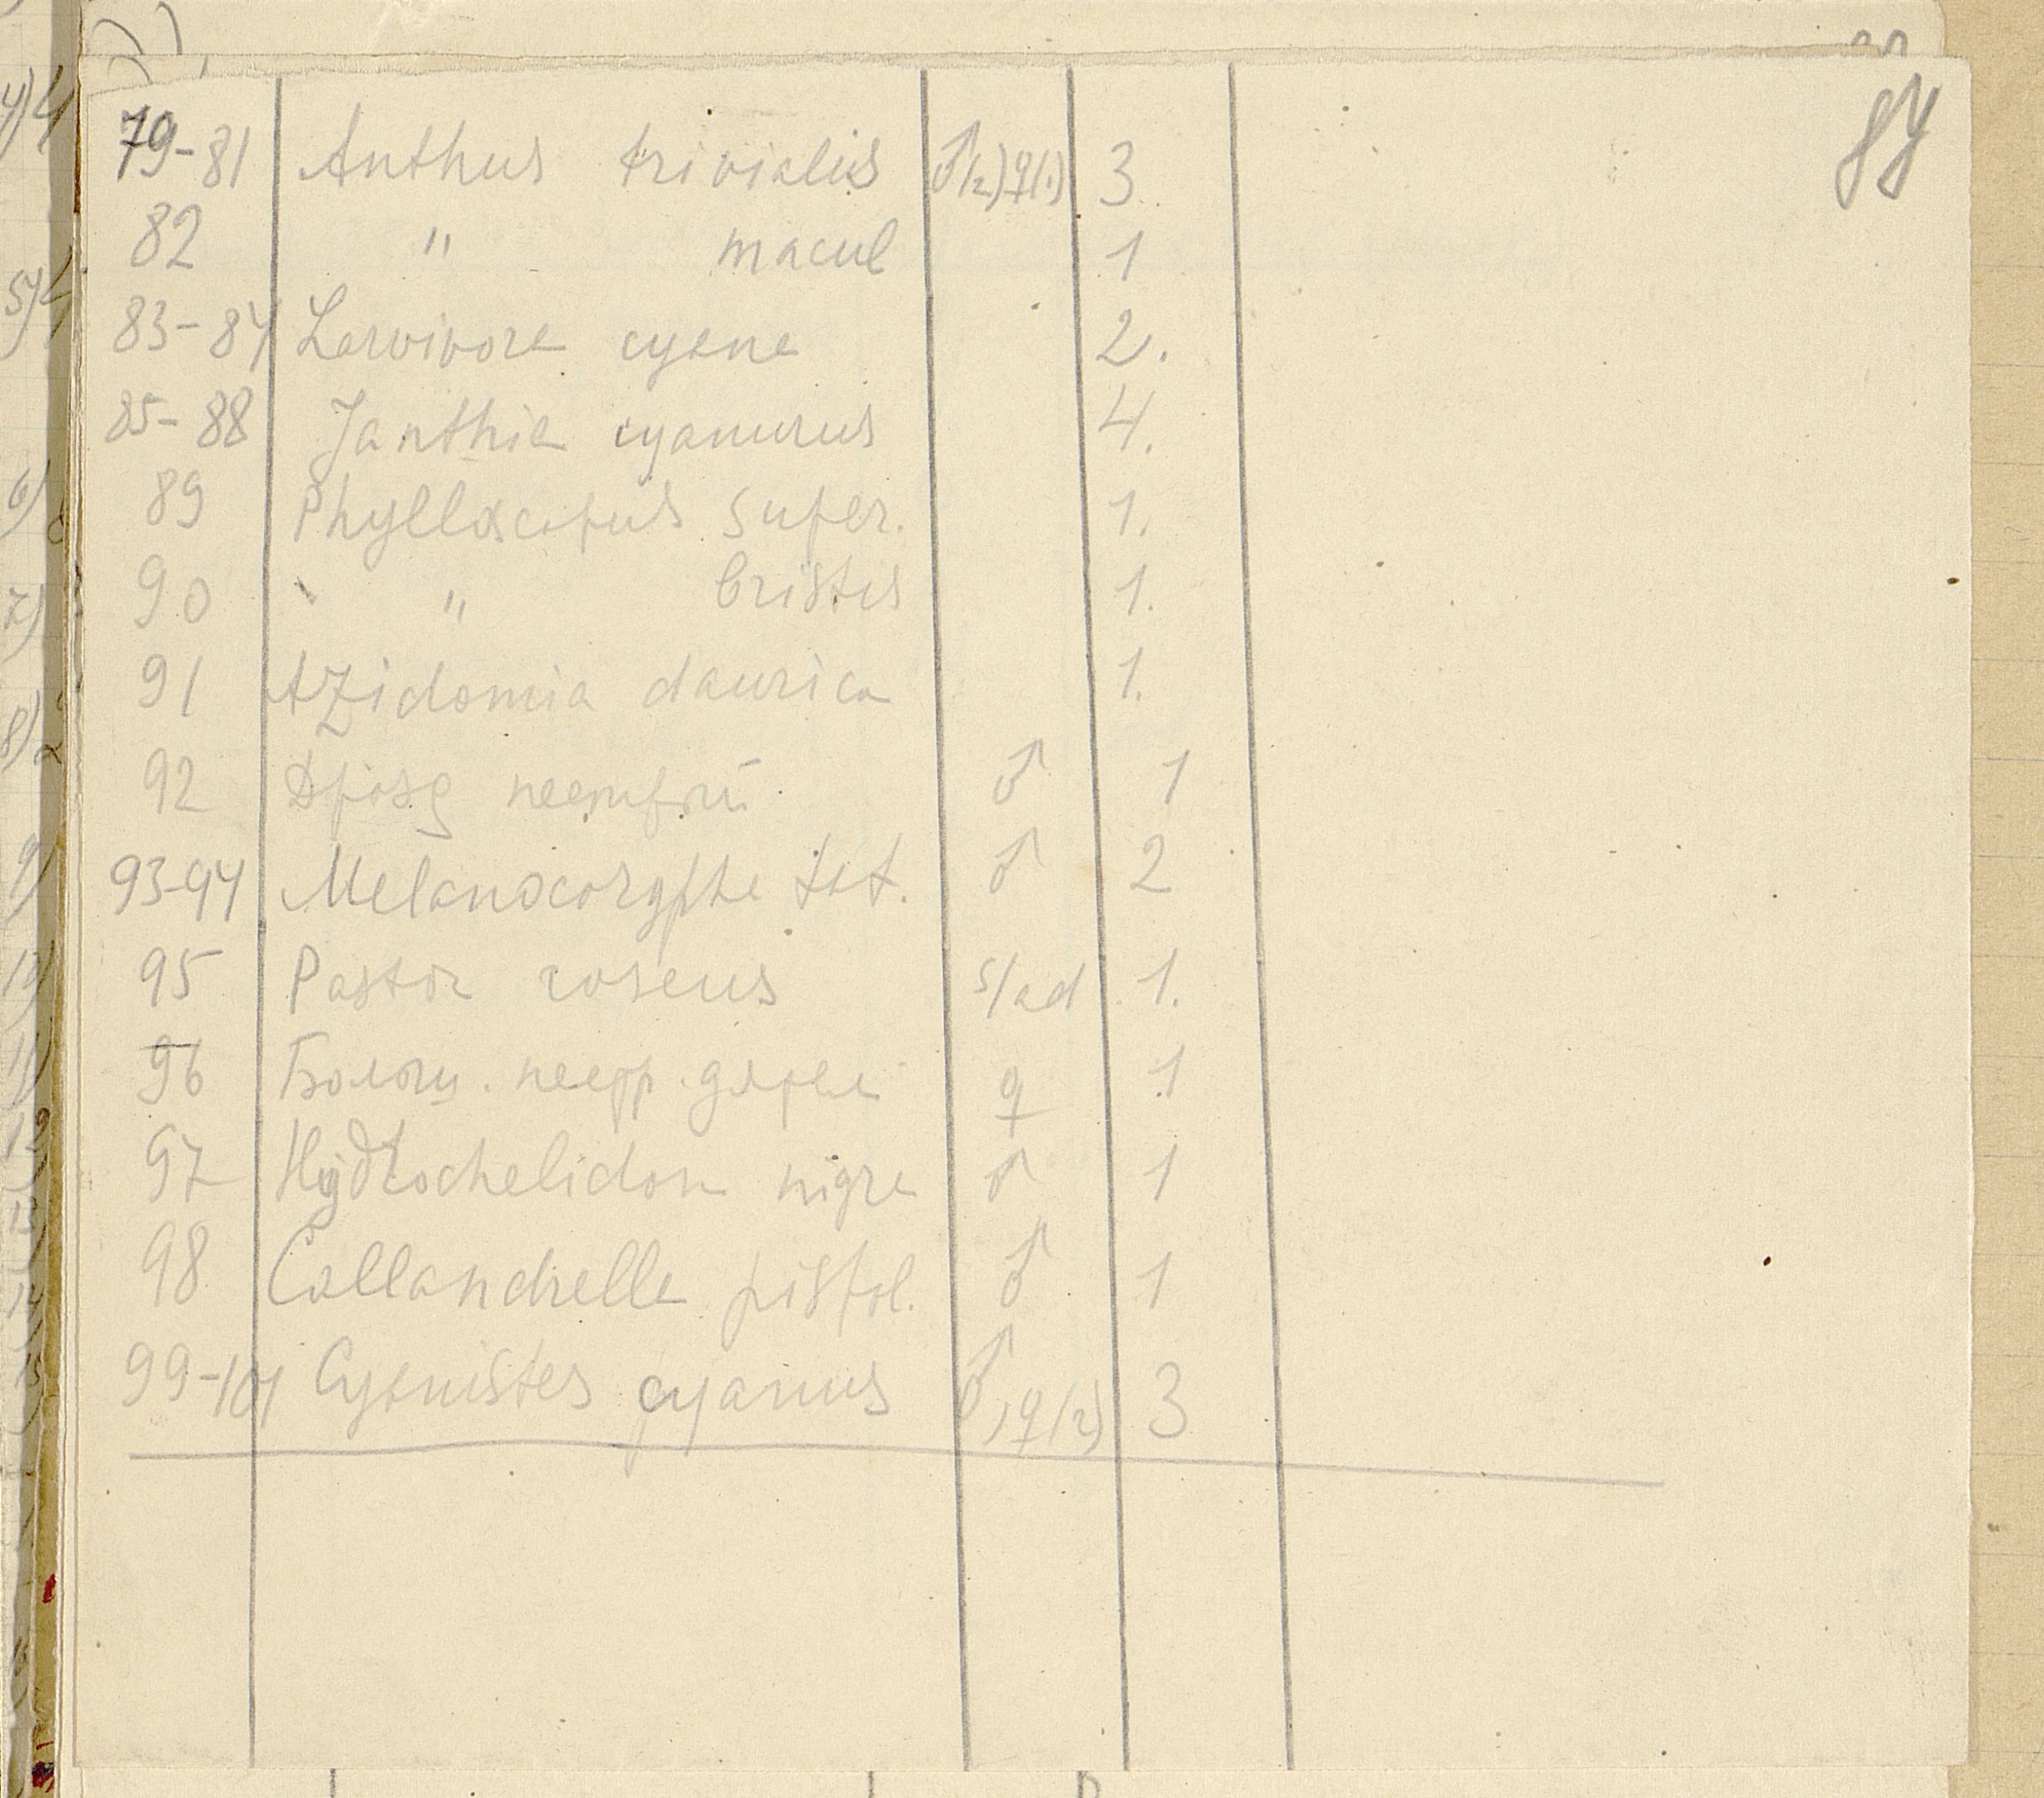 87
79-81 Anthus trivialis ♂(2)♀(1) 3
82 " macul 1
83-84 Larvivora cyane 2.
85-88 Janthia cyanurus 4.
89 Phylloscopus super. 1.
90 " tristis 1.
91 daurica 1.
92 Дрозд ♂ 1
93-94 Melanocorypha tat. ♂ 2
95 Pastor roseus s/ad 1.
96 ♀ 1
97 Hydrochelidon nigra ♂ 1
98 Callandrella pispol. ♂ 1
99-101 Cyanistes cyanus ♂, ♀(2) 3